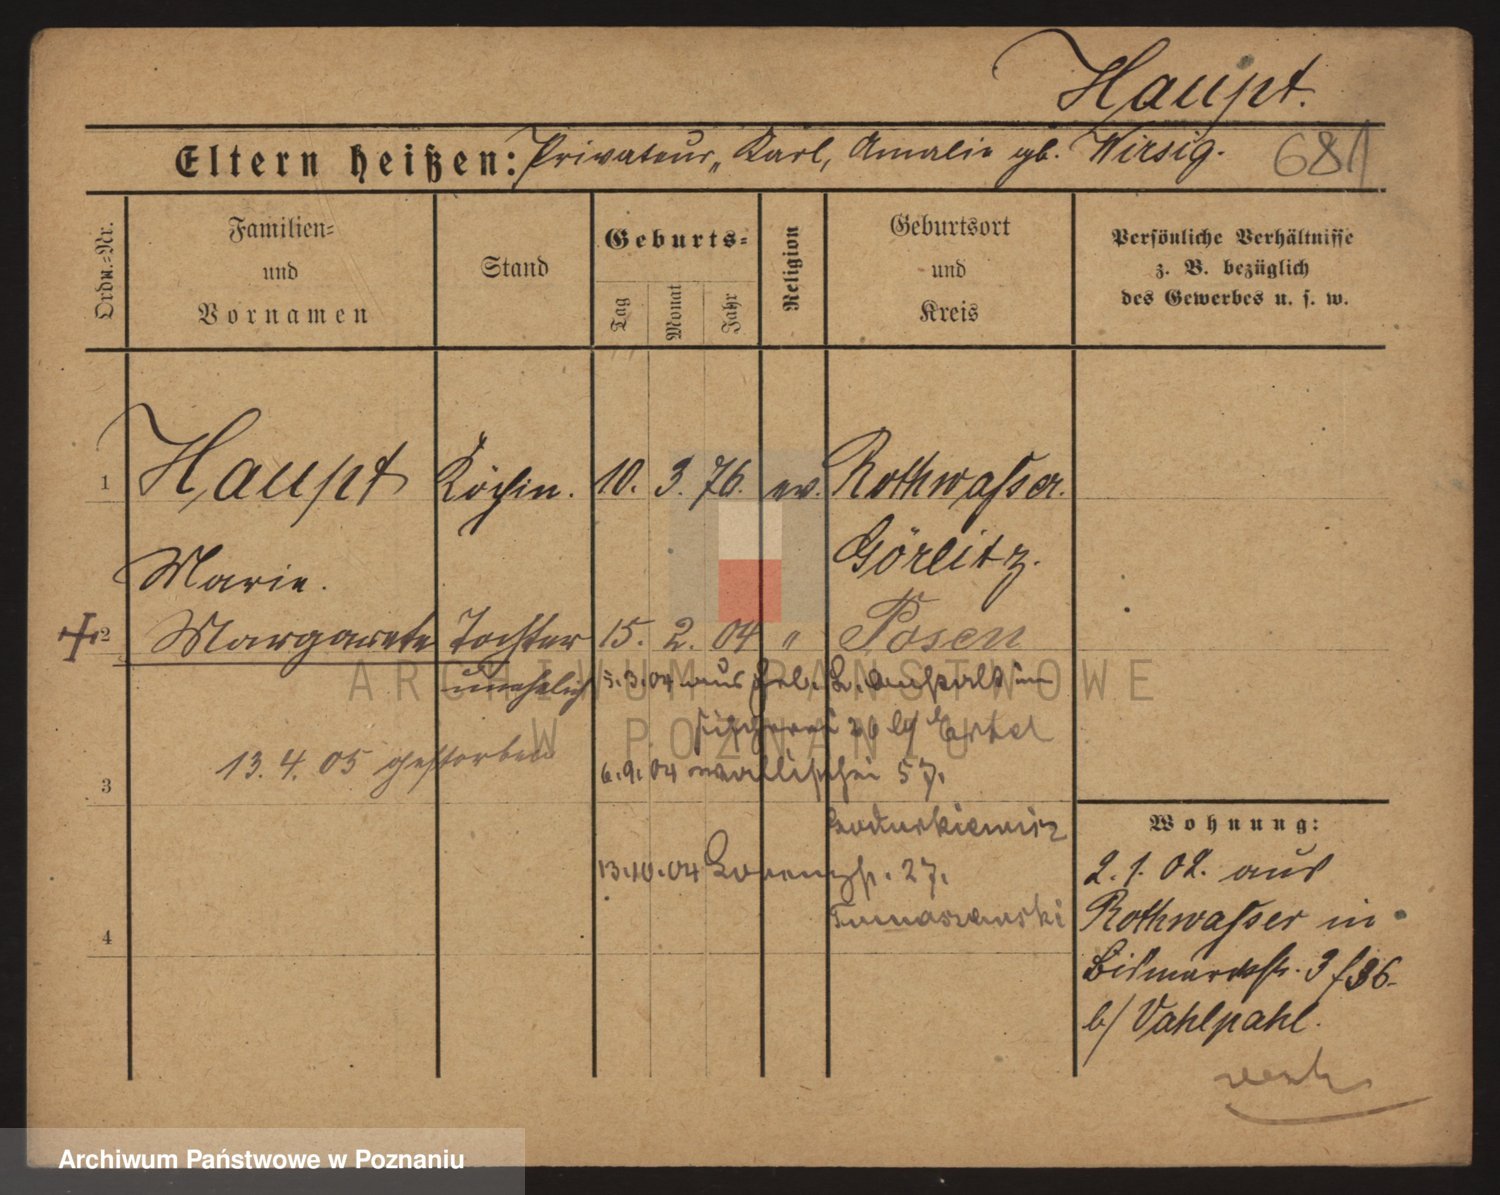 Haupt.
Eltern heißen: Privateur, Karl, Amalie gb. Wirsig.
681
Ordn.-Nr.
Familien-
und
Vornamen
Stand
Geburts-
Tag
Monat
Jahr
Religion
Geburtsort
und
Kreis
Persönliche Verhältnisse
z. B. bezüglich
des Gewerbes u. s. w.
1 Haupt Köchin. 10. 3. 76. ev. Rothwasser.
Görlitz.
Marie.
2 Margarete Tochter 15. 2. 04 " Posen
unehelich 5.3.04 aus
20 b/
13.4.05 gestorben
3
6.9.04 Wallischei 57.
13.10.04 Lorenzstr. 27.
Tomaszewski
4
Wohnung:
2.1.02. aus
Rothwasser in
Bismarckstr. 3
b/ Vahlpahl.
ARCHIWUM PAŃSTWOWE
W POZNANIU
Archiwum Państwowe w Poznaniu